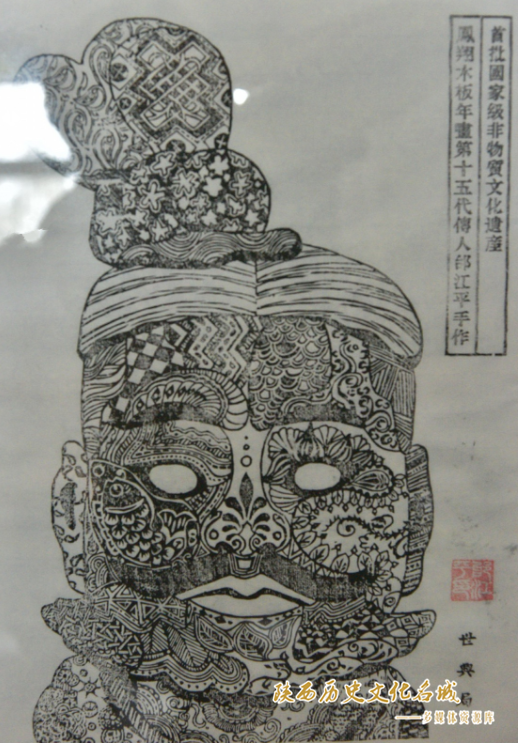 首批國家級非物質文化遺產
鳳翔木板年畫第十五代傳人邰江平手作
世興局
陕西历史文化名城
——多媒体资源库